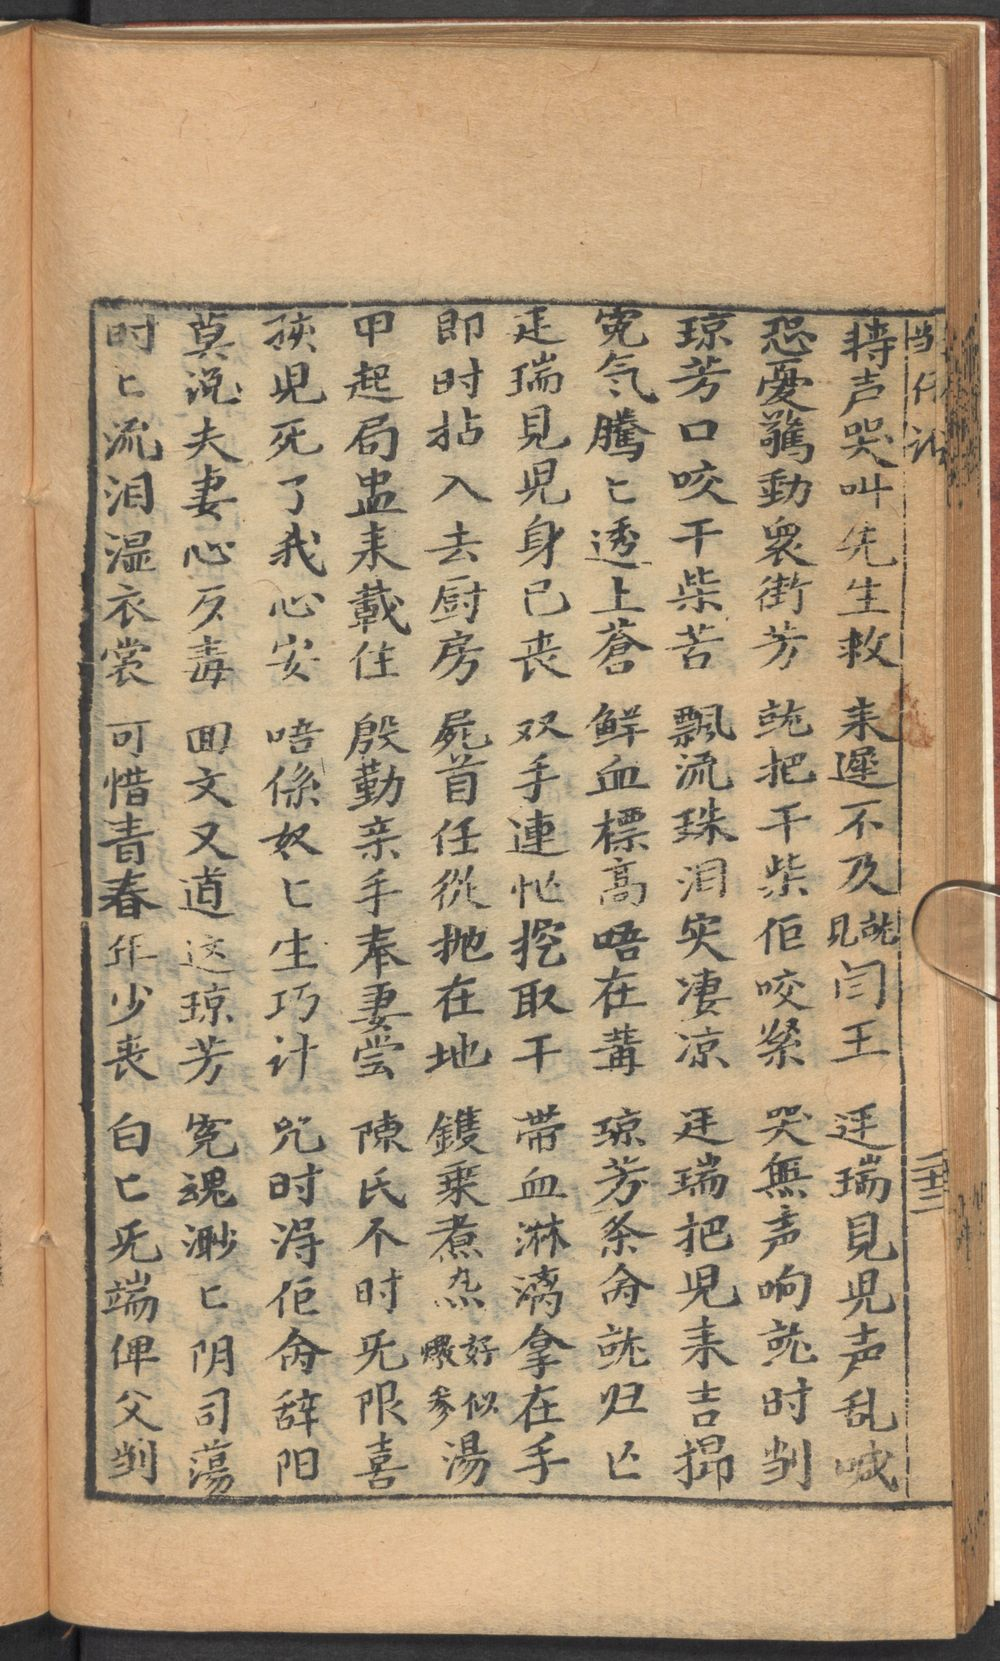 時声哭叫先生救 来遲不及就見闫王 廷瑞見児声乱喊
恐憂驚動衆街芳 就把干柴佢咬緊 哭無声响就时剖
琼芳口咬干柴苦 飄流珠泪实凄凉 廷瑞把児来吉揚
寃气騰〻透上蒼 鮮血標高唔在講 琼芳条命就归亡
廷瑞見児身已丧 双手連忙挖取干 带血淋漓拿在手
即时拈入去厨房 屍首任從抛在地 鑊乘煮𤇆好似燉参湯
甲起局盅来載住 殷勤亲手奉妻尝 陳氏不时旡限喜
孩児死了我心安 唔係奴〻生巧计 咒时淂佢命辞阳
莫说夫妻心歹毒 囬文又道这琼芳 寃魂渺〻阴司蕩
时〻流泪湿衣裳 可惜青春年少丧 白〻旡端俾父剖
二十二